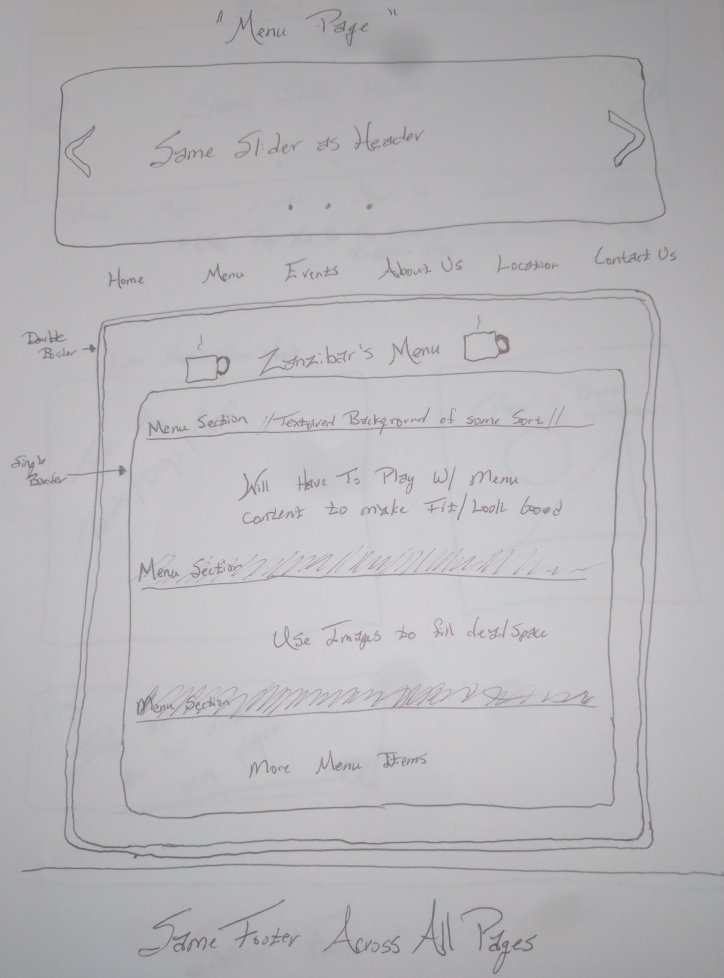 "Menu Page"
Same Slider as Header
Home Menu Events About Us Location Contact Us
Double
Border
Zanzibar's Menu
Menu Section //Textured Background of some Sort//
Single
Border
Will Have To Play W/ Menu
content to make Fit/Look Good
Menu Section
Use Images to fill dead space
Menu Section
More Menu Items
Same Footer Across All Pages